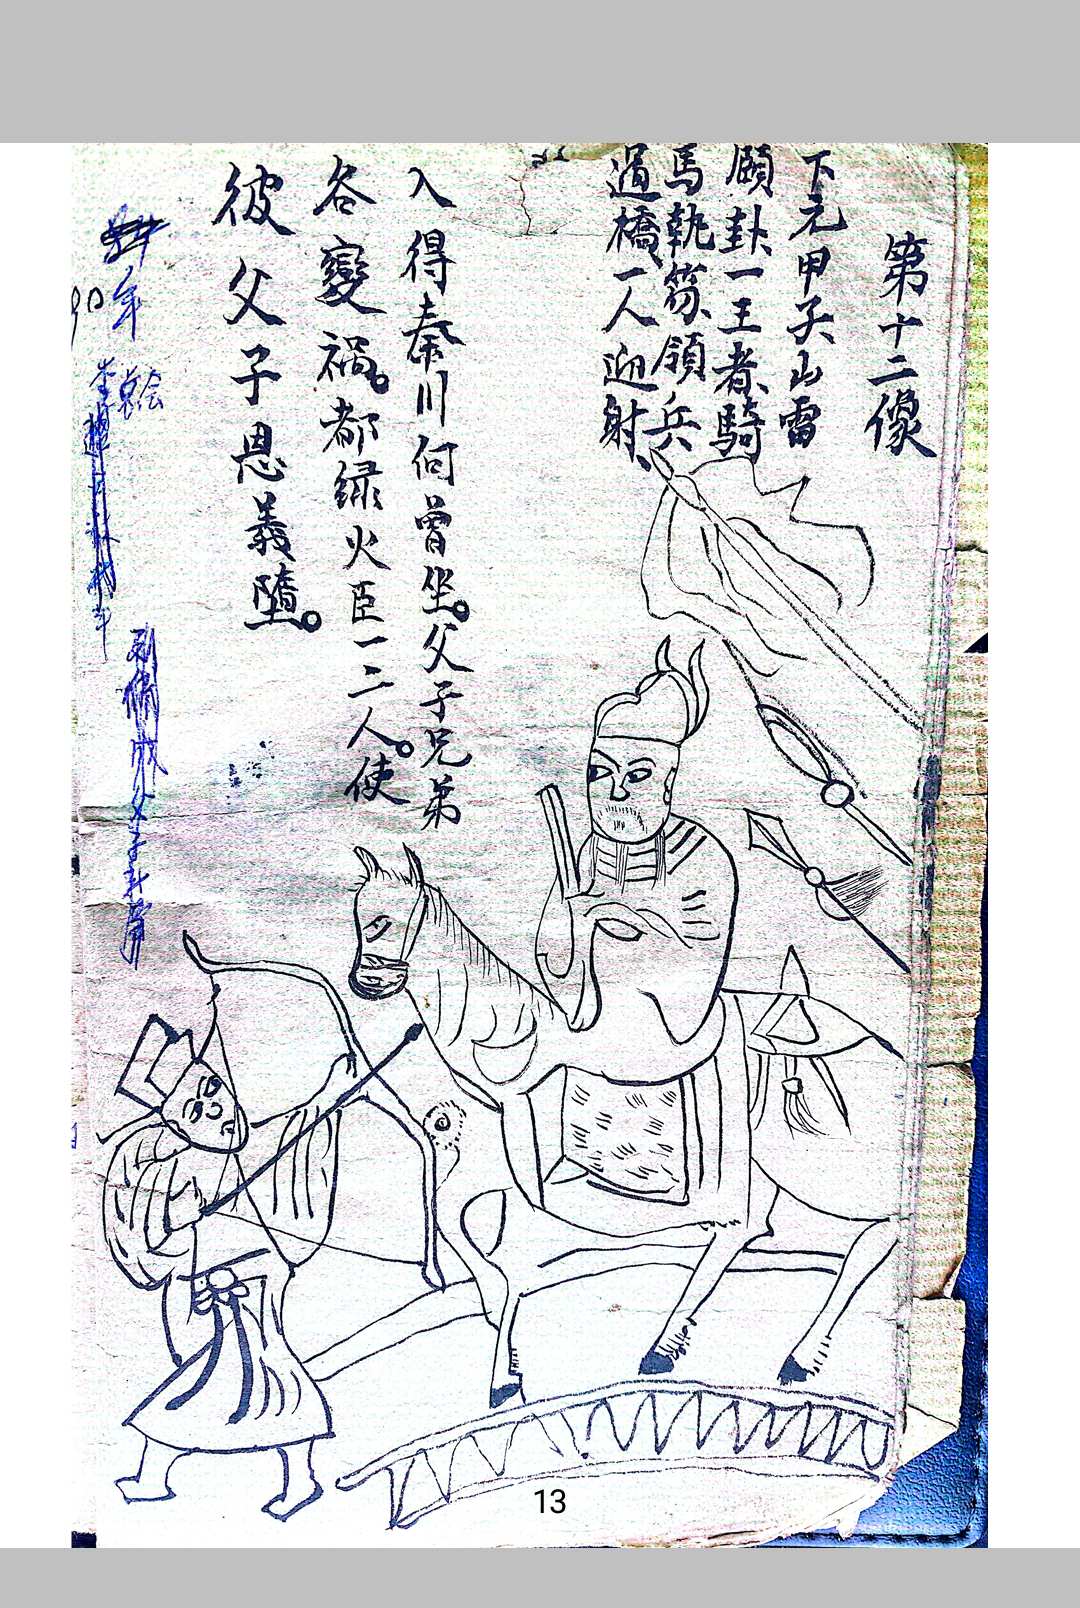 第十二像
下元甲子山雷
頤卦一王者騎
馬執笏領兵
過橋一人迎射
入得秦川何曾坐。父子兄弟
各變禍。都緑火臣一二人。使
彼父子恩義墮。
年
13